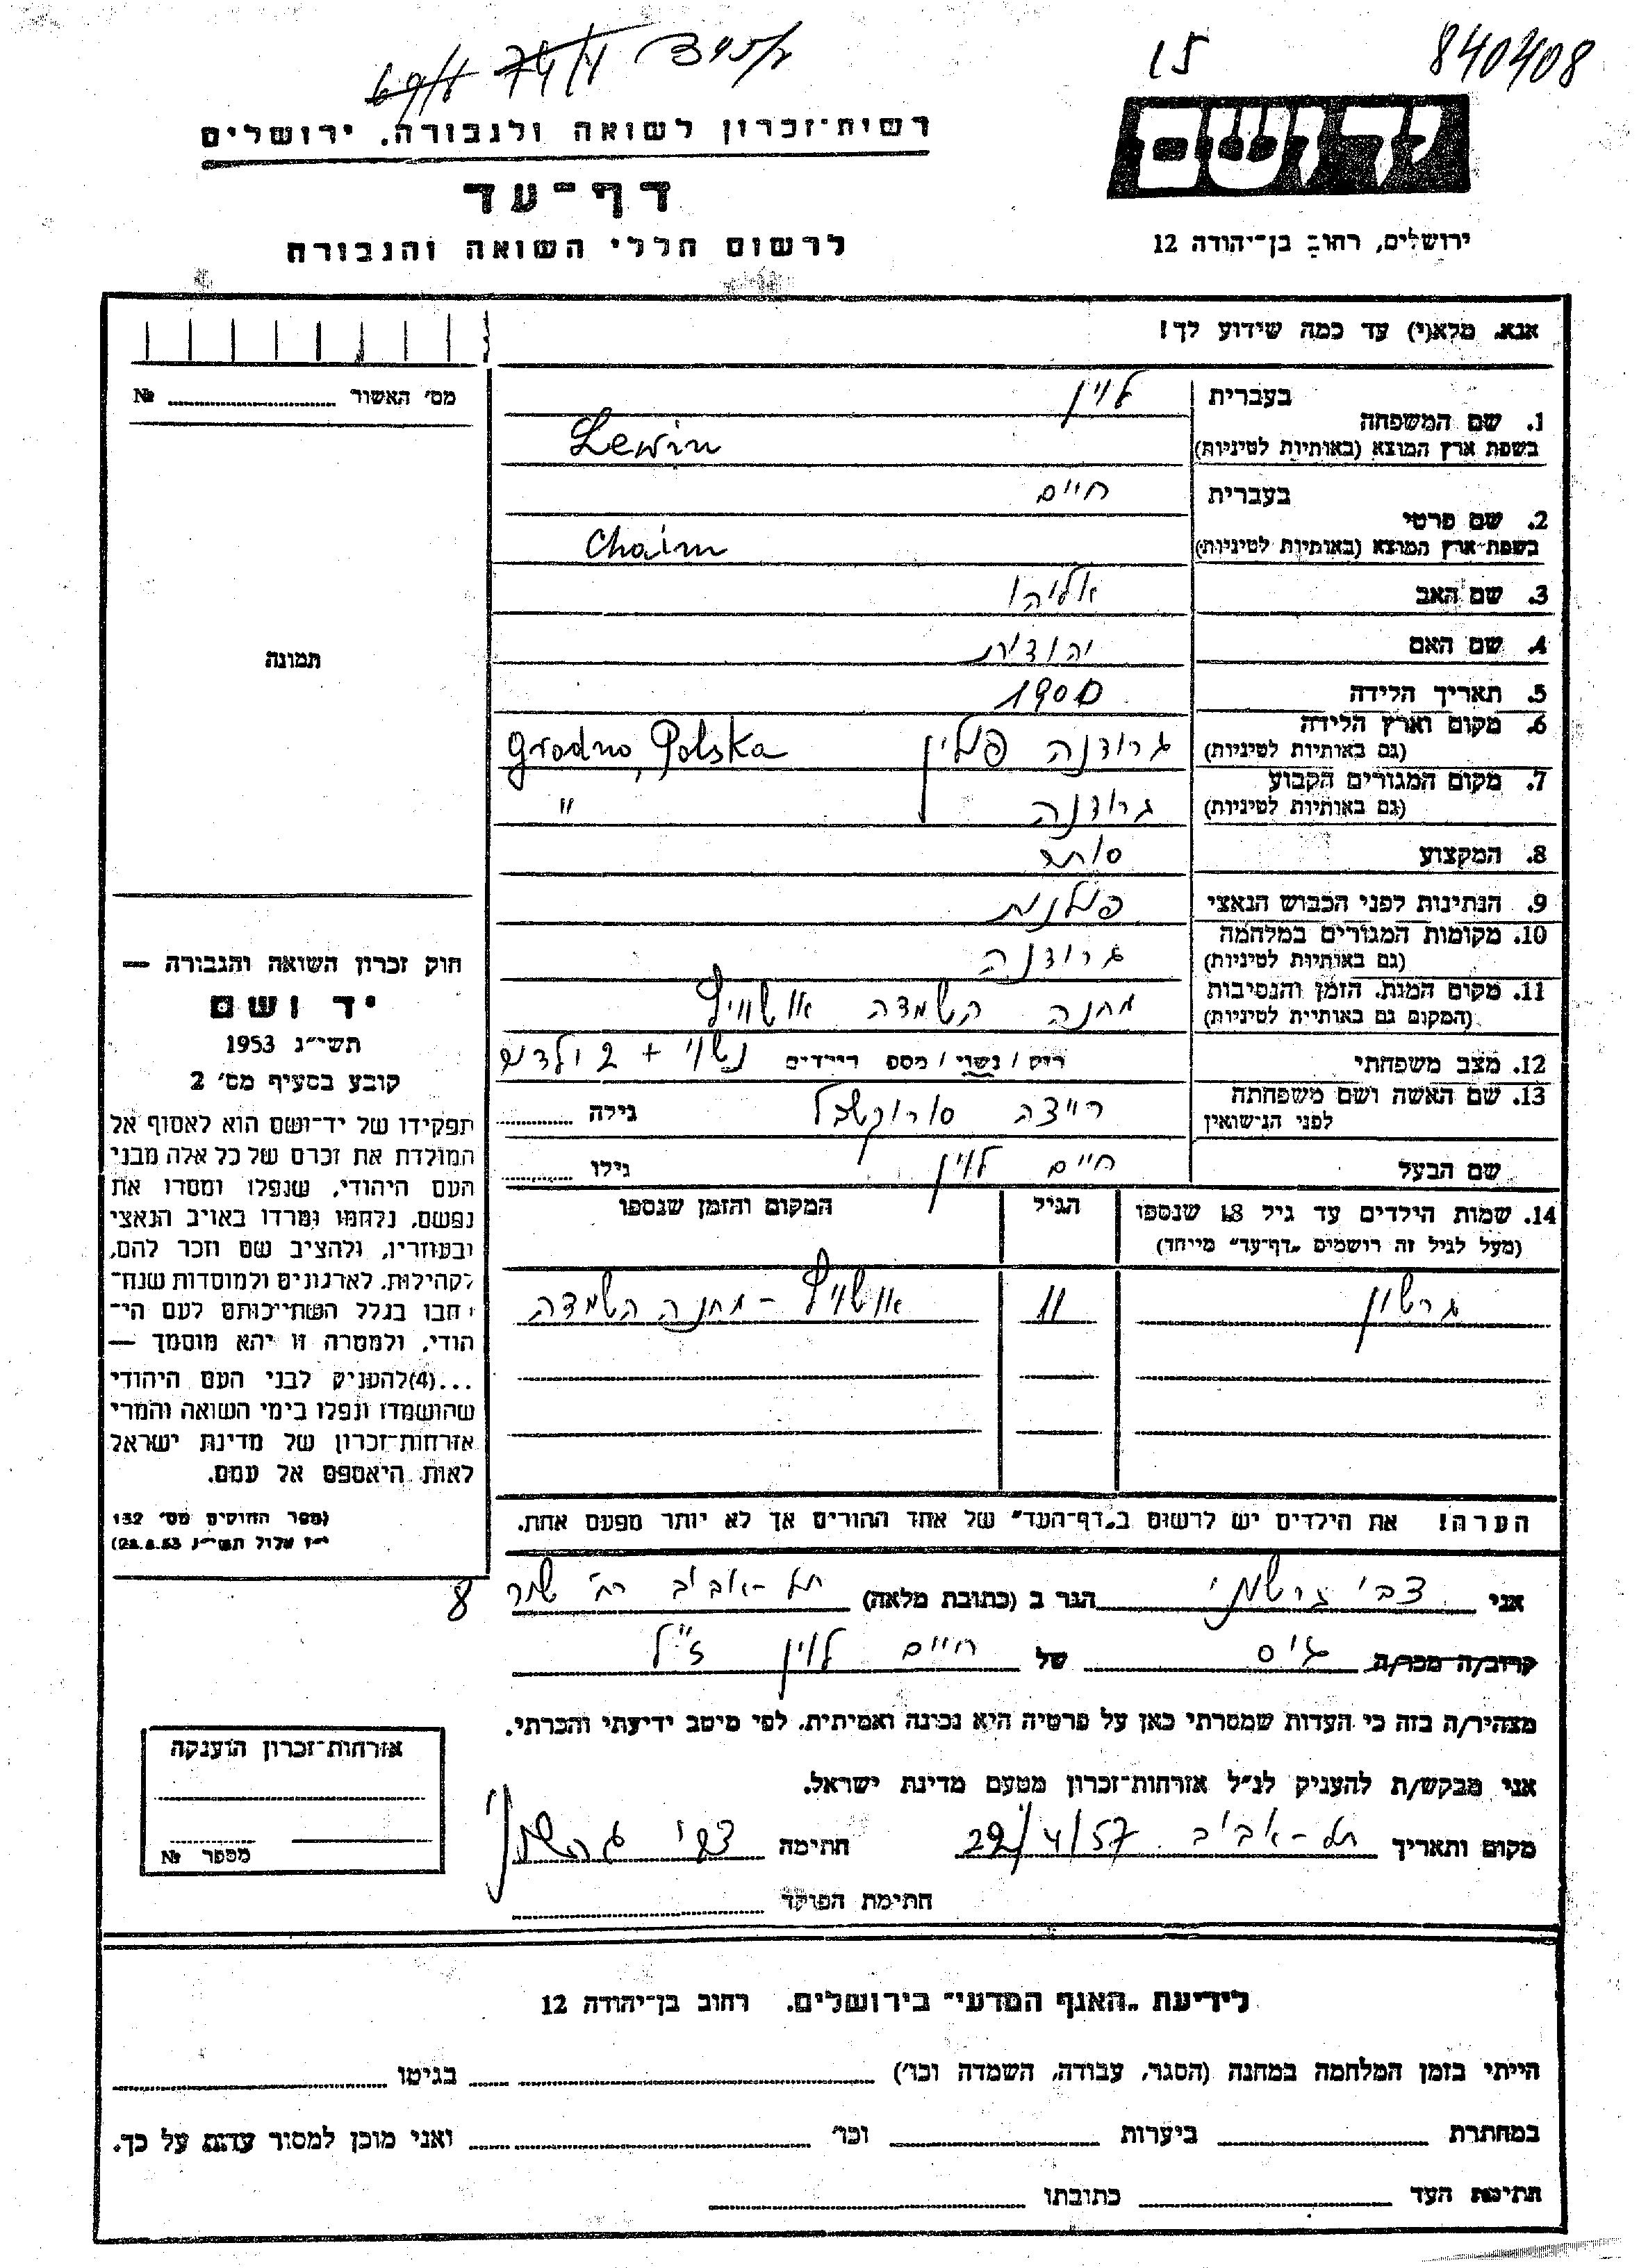 15 840408
69/8 74/1
יד ושם
רשות-זכרון לשואה ולגבורה, ירושלים
דף-עד
לרשום חללי השואה והגבורה
ירושלים, רחוב בן-יהודה 12
אנא, מלא(י) עד כמה שידוע לך!
מס׳ האשור №
1. שם המשפחה
בעברית לוין
בשפת ארץ המוצא (באותיות לטיניות) Lewin
2. שם פרטי
בעברית חיים
בשפת-ארץ המוצא (באותיות לטיניות) Chaim
3. שם האב אליהו
4. שם האם יהודית
5. תאריך הלידה 1900
6. מקום וארץ הלידה
(גם באותיות לטיניות) גרודנה פולין Grodno, Polska
7. מקום המגורים הקבוע
(גם באותיות לטיניות) גרודנה "
8. המקצוע סוחר
9. הנתינות לפני הכבוש הנאצי פולנית
10. מקומות המגורים במלחמה
(גם באותיות לטיניות) גרודנה
11. מקום המות, הזמן והנסיבות
(המקום גם באותיות לטיניות) מחנה השמדה אושוויץ
12. מצב משפחתי רוק / נשוי / מספ ריילדים נשוי + 2 ילדים
13. שם האשה ושם משפחתה
לפני הנישואין גילה
שם הבעל חיים לוין גילו
14. שמות הילדים עד גיל 18 שנספו
(מעל לגיל זה רושמים „דף-עד" מיוחד)
הגיל
המקום והזמן שנספו
גרשון 11 אושויץ - מחנה השמדה
הערה! את הילדים יש לרשום ב„דף-העד" של אחד ההורים אך לא יותר מפעם אחת.
תמונה
חוק זכרון השואה והגבורה —
יד ושם
תשי״ג 1953
קובע בסעיף מס׳ 2
תפקידו של יד-ושם הוא לאסוף אל
המולדת את זכרם של כל אלה מבני
העם היהודי, שנפלו ומסרו את
נפשם, נלחמו ומרדו באויב הנאצי
ובעוזריו, ולהציב שם וזכר להם,
לקהילות, לארגונים ולמוסדות שנח-
רבו בגלל השתייכותם לעם הי-
הודי, ולמטרה זו יהא מוסמך —
...(4) להעניק לבני העם היהודי
שהושמדו ונפלו בימי השואה והמרי
אזרחות-זכרון של מדינת ישראל
לאות היאספם אל עמם.
(ספר החוקים מס׳ 132
י״ז אלול תשי״ג 28.8.53)
אני צבי גרשוני הגר ב (כתובת מלאה) תל-אביב רח׳ 8
קרוב/ה מכר/ה גיס של חיים לוין ז״ל
מצהיר/ה בזה כי העדות שמסרתי כאן על פרטיה היא נכונה ואמיתית, לפי מיטב ידיעתי והכרתי.
אני מבקש/ת להעניק לנ״ל אזרחות-זכרון מטעם מדינת ישראל.
מקום ותאריך תל-אביב 22/4/57 חתימה צבי גרשוני
חתימת הפוקד
אזרחות-זכרון הוענקה
מספר №
לידיעת „האגף המדעי" בירושלים. רחוב בן-יהודה 12
הייתי בזמן המלחמה במחנה (הסגר, עבודה, השמדה וכו׳) בגיטו
במחתרת ביערות וכו׳ ואני מוכן למסור עדות על כך.
חתימת העד כתובתו